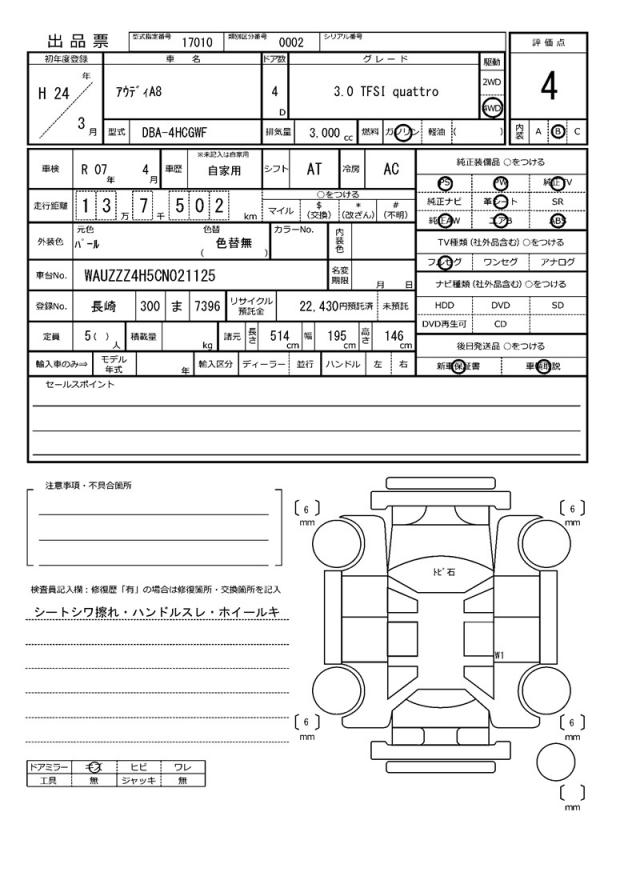 出品票 型式指定番号 17010 類別区分番号 0002 シリアル番号
初年度登録 車名 ドア数 グレード 駆動 評価点
H 24 年 3 月 アウディA8 4 D 3.0 TFSI quattro 2WD 4WD 4
型式 DBA-4HCGWF 排気量 3,000 cc 燃料 ガソリン 軽油 ( ) 内装 A B C
車検 R 07 年 4 月 車歴 ※未記入は自家用 自家用 シフト AT 冷房 AC 純正装備品 ○をつける
PS PW 純正TV
走行距離 1 3 万 7 千 5 0 2 km ○をつける マイル $ (交換) * (改ざん) # (不明) 純正ナビ 革シート SR
純正AW エアB ABS
外装色 元色 パール 色替 色替無 ( ) カラーNo. 内装色 TV種類 (社外品含む) ○をつける
フルセグ ワンセグ アナログ
車台No. WAUZZZ4H5CN021125 名変期限 月 日 ナビ種類 (社外品含む) ○をつける
登録No. 長崎 300 ま 7396 リサイクル預託金 22,430円預託済 未預託 HDD DVD SD
DVD再生可 CD
定員 5( ) 人 積載量 kg 諸元 長さ 514 cm 幅 195 cm 高さ 146 cm 後日発送品 ○をつける
輸入車のみ⇒ モデル年式 年 輸入区分 ディーラー 並行 ハンドル 左 右 新車保証書 車輌取説
セールスポイント
注意事項・不具合箇所
[ 6 ] mm [ 6 ] mm
トビ石
検査員記入欄:修復歴「有」の場合は修復箇所・交換箇所を記入
シートシワ擦れ・ハンドルスレ・ホイールキ
W1
[ 6 ] mm [ 6 ] mm
ドアミラー キズ ヒビ ワレ
工具 無 ジャッキ 無
[ ] mm